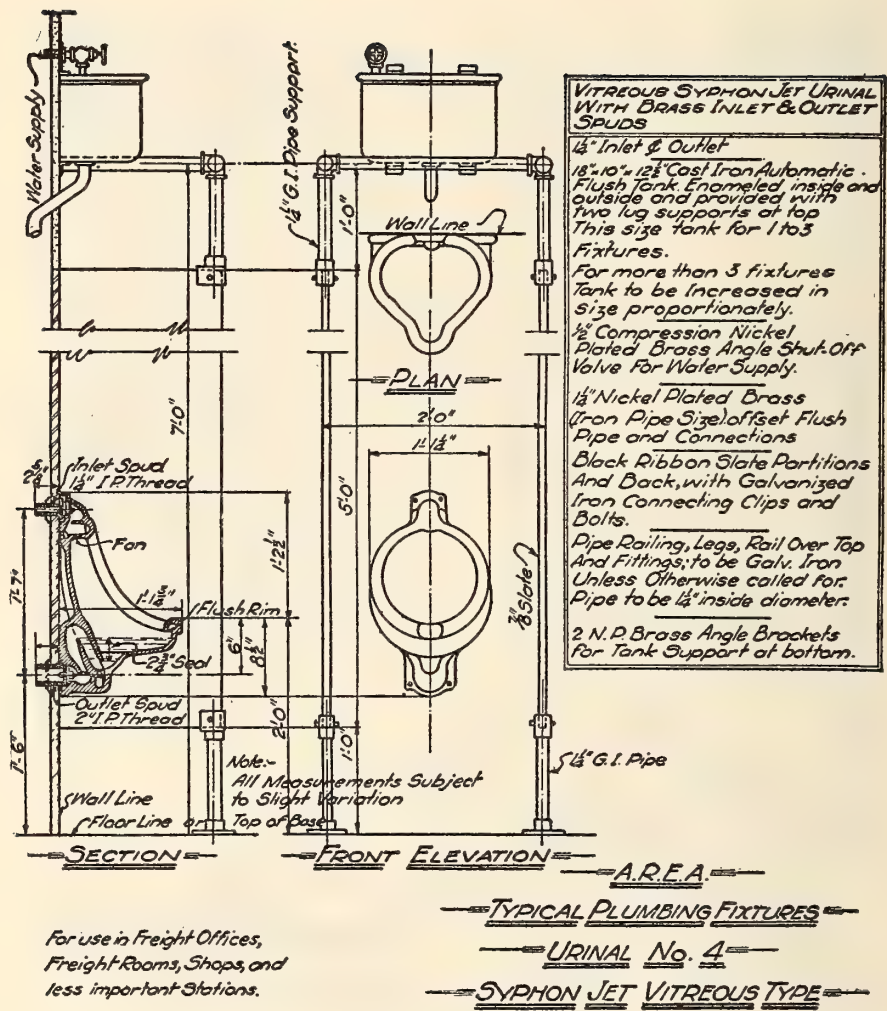 Water Supply
1¼" G.I. Pipe Support.
1'-0"
Wall Line
PLAN
2'-0"
1'-1¼"
7'-0"
5'-0"
Inlet Spud
1¼" I.P. Thread
Fan
1'-2½"
Flush Rim
6"
8½"
2¾" Seal
⅞ Slate
Outlet Spud
2" I.P. Thread
2'-0"
1'-0"
1'-6"
Note:-
All Measurements Subject
to Slight Variation
1¼" G.I. Pipe
Wall Line
Floor Line or Top of Base
SECTION
FRONT ELEVATION
VITREOUS SYPHON JET URINAL
WITH BRASS INLET & OUTLET
SPUDS
Inlet & Outlet
18"x10"x12½" Cast Iron Automatic
Flush Tank. Enameled inside and
outside and provided with
two lug supports at top
This size tank for 1 to 3
Fixtures.
For more than 3 fixtures
Tank to be Increased in
size proportionately.
½" Compression Nickel
Plated Brass Angle Shut-Off
Valve For Water Supply.
1¼" Nickel Plated Brass
(Iron Pipe Size) offset Flush
Pipe and Connections
Black Ribbon Slate Partitions
And Back, with Galvanized
Iron Connecting Clips and
Bolts.
Pipe Railing, Legs, Rail Over Top
And Fittings; to be Galv. Iron
Unless Otherwise called for.
Pipe to be 1¼" inside diameter.
2 N.P. Brass Angle Brackets
for Tank Support at bottom.
A.R.E.A.
TYPICAL PLUMBING FIXTURES
URINAL No. 4
SYPHON JET VITREOUS TYPE
For use in Freight Offices,
Freight Rooms, Shops, and
less important Stations.